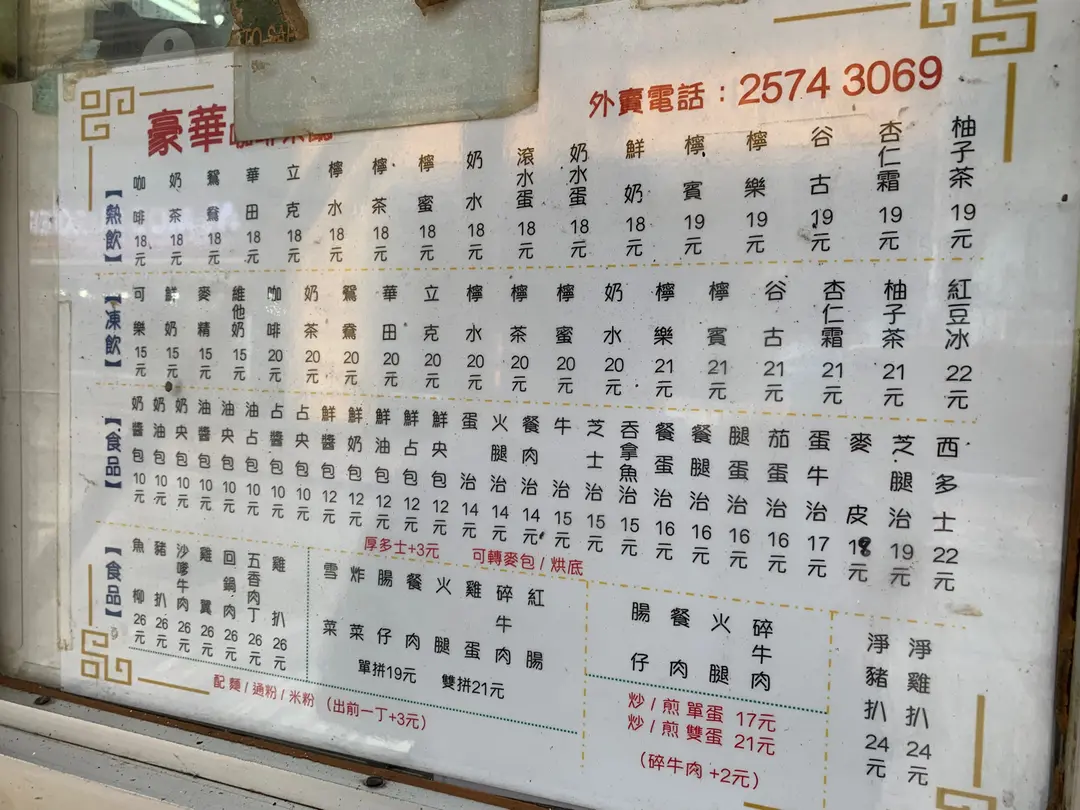 豪華
外賣電話：2574 3069
【熱飲】
咖啡 18元
奶茶 18元
鴛鴦 18元
華田 18元
立克 18元
檸水 18元
檸茶 18元
檸蜜 18元
奶水 18元
滾水蛋 18元
奶水蛋 18元
鮮奶 18元
檸賓 19元
檸樂 19元
谷古 19元
杏仁霜 19元
柚子茶 19元
【凍飲】
可樂 15元
鮮奶 15元
麥精 15元
維他奶 15元
咖啡 20元
奶茶 20元
鴛鴦 20元
華田 20元
立克 20元
檸水 20元
檸茶 20元
檸蜜 20元
奶水 20元
檸樂 21元
檸賓 21元
谷古 21元
杏仁霜 21元
柚子茶 21元
紅豆冰 22元
【食品】
奶醬包 10元
奶油包 10元
奶央包 10元
油醬包 10元
油央包 10元
油占包 10元
占醬包 10元
占央包 10元
鮮醬包 12元
鮮奶包 12元
鮮油包 12元
鮮占包 12元
鮮央包 12元
蛋治 14元
火腿治 14元
餐肉治 14元
牛治 15元
芝士治 15元
吞拿魚治 15元
餐蛋治 16元
餐腿治 16元
腿蛋治 16元
茄蛋治 16元
蛋牛治 17元
麥皮 18元
芝腿治 19元
西多士 22元
厚多士+3元 可轉麥包 / 烘底
【食品】
魚柳 26元
豬扒 26元
沙嗲牛肉 26元
雞翼 26元
回鍋肉 26元
五香肉丁 26元
雞扒 26元
雪菜
炸菜
腸仔
餐肉
火腿
雞蛋
碎牛肉
紅腸
單拼19元 雙拼21元
配 麵 / 通粉 / 米粉 （出前一丁+3元）
腸仔
餐肉
火腿
碎牛肉
炒 / 煎 單蛋 17元
炒 / 煎 雙蛋 21元
（碎牛肉 +2元）
淨豬扒 24元
淨雞扒 24元